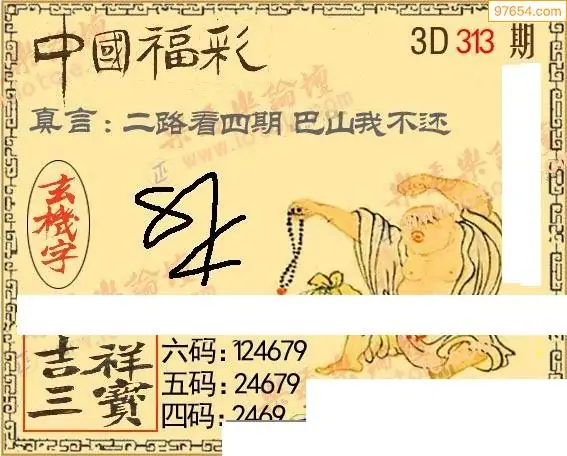 97654.com
中國福彩
3D 313 期
真言:二路看四期 巴山我不还
玄機字
吉祥三寶
六码:124679
五码:24679
四码:2469